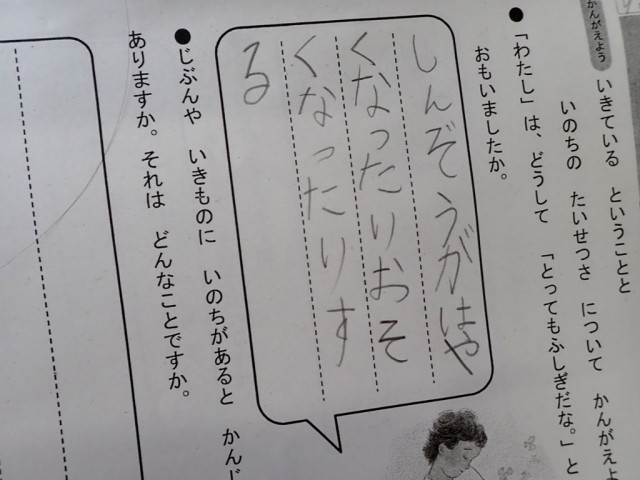 かんがえよう
いきている ということと
いのちの たいせつさ について かんがえよ
●「わたし」は、どうして 「とってもふしぎだな。」と
おもいましたか。
しんぞうがはや
くなったりおそ
くなったりす
る
●じぶんや いきものに いのちがあると かんじ
ありますか。それは どんなことですか。